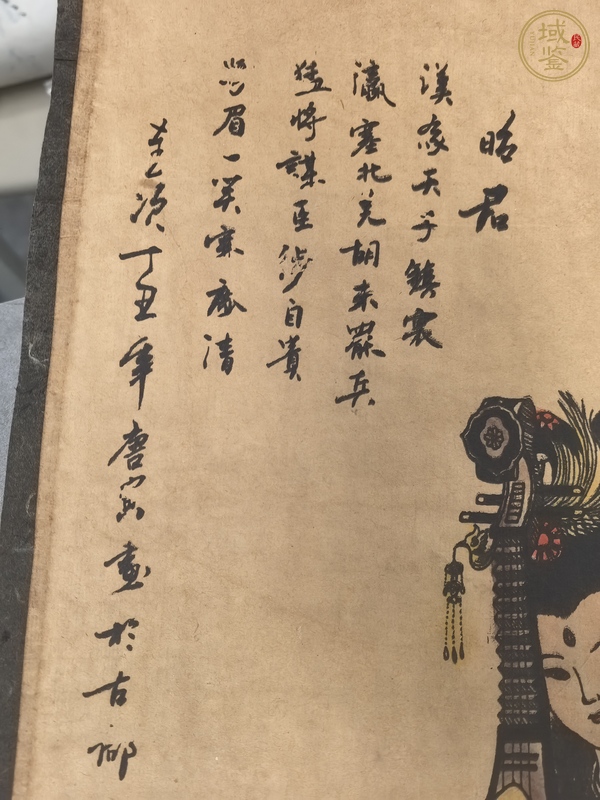 昭君
漢家天子鎮寰
瀛塞北羌胡未罷兵
猛將謀臣徒自貴
蛾眉一笑塞塵清
歲次丁丑年唐寅畫於古鄉
域鉴